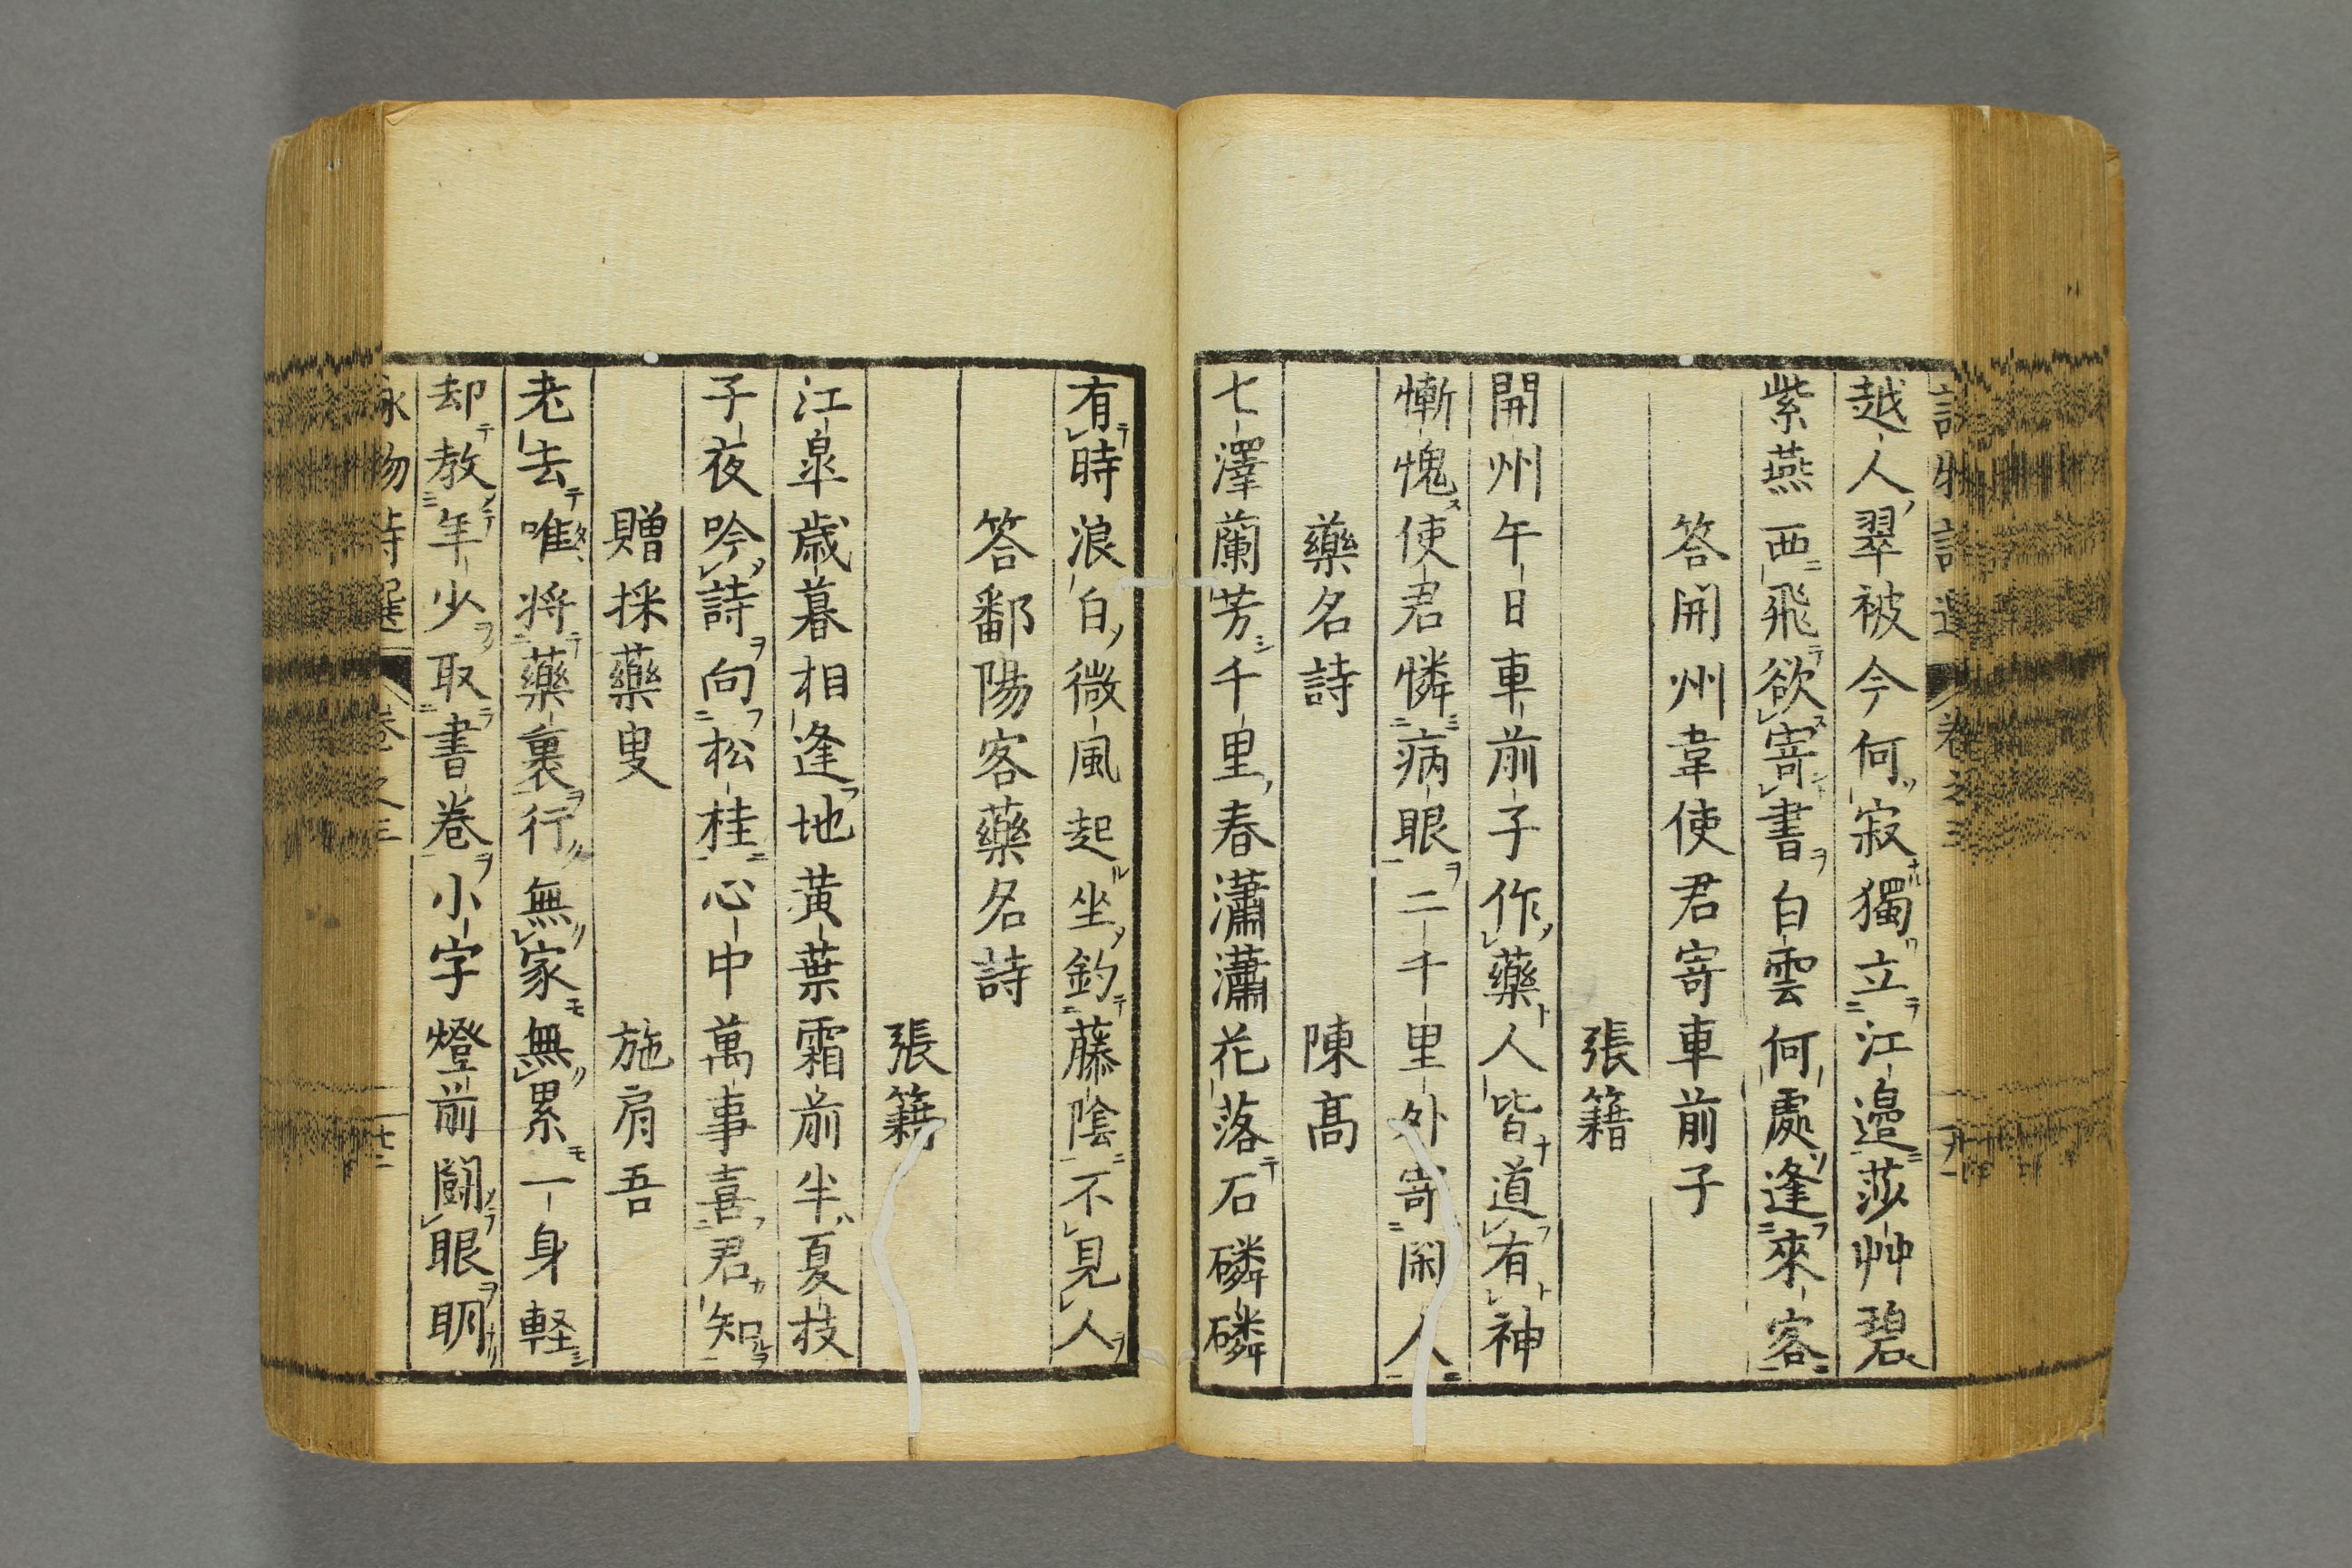 越人翠被今何寂獨立江邉莎艸碧
紫燕西飛欲寄書白雲何處逢來客
答開州韋使君寄車前子
張籍
開州午日車前子作藥人皆道有神
慚愧使君憐病眼二千里外寄閑人
藥名詩 陳髙
七澤蘭芳千里春瀟瀟花落石磷磷
有時浪白微風起坐釣藤陰不見人
答鄱陽客藥名詩
張籍
江皐歳暮相逢地黃葉霜前半夏枝
子夜吟詩向松桂心中萬事喜君知
贈採藥叟 施肩吾
老去唯將藥裏行無家無累一身軽
却教年少取書卷小字燈前闘眼明
卷之三